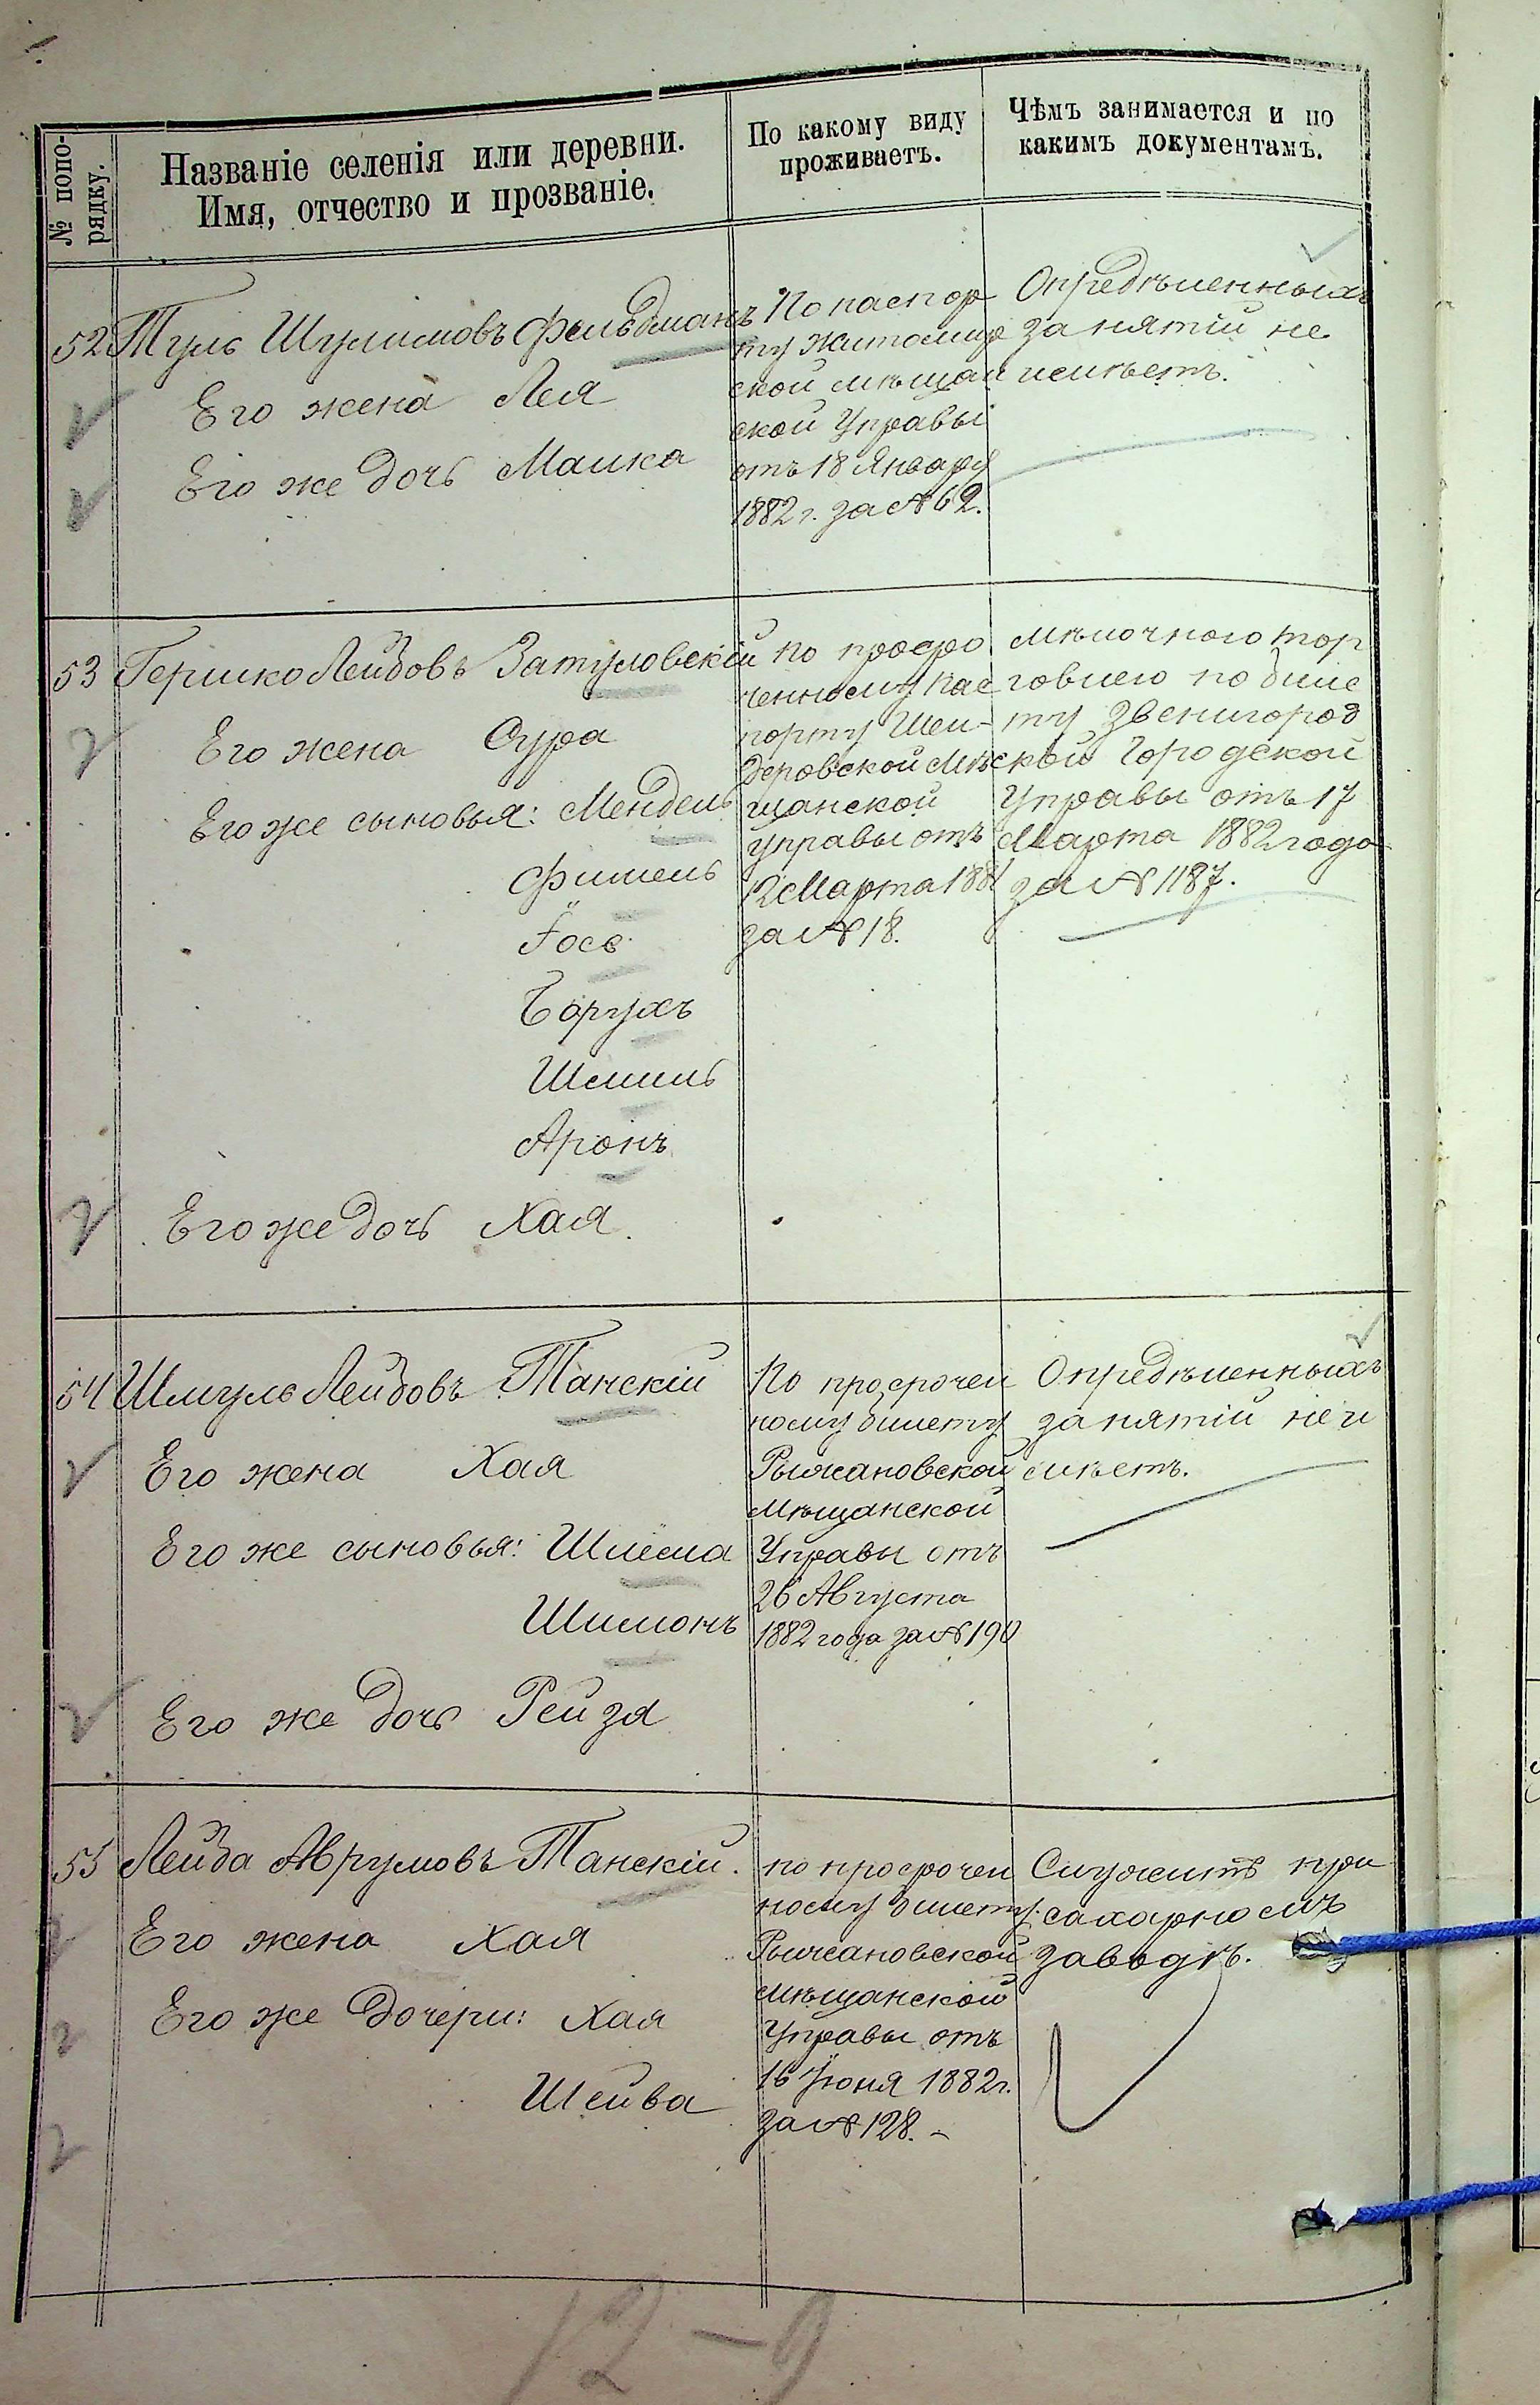 № попо-
рядку.
Названіе селенія или деревни.
Имя, отчество и прозваніе.
По какому виду
проживаетъ.
Чѣмъ занимается и по
какимъ документамъ.
52 Шулимовъ Фельдманъ
Его жена Лея
Его же дочь Малка
По паспор
ту житомир
ской мѣщан
ской Управы
отъ 18 Января
1882 г. за № 62.
Опредѣленныхъ
занятій не
имѣетъ.
53 Гершко Лейбовъ Затуловскій
Его жена Сура
Его же сыновья: Мендель
Фишель
Іось
Борухъ
Шмиль
Аронъ
Его же дочь Хая.
по просро
ченному пас
порту Шен-
деровской Мѣ
щанской
управы отъ
12 Марта 1881
за № 18.
мѣлочною тор
говлею по биле
ту Звенигород
ской Городской
Управы отъ 17
Марта 1882 года
за № 1187.
54 Шмуль Лейбовъ Танскій
Его жена Хая
Его же сыновья: Шлёма
Шимонъ
Его же дочь Рейза
По просрочен
ному билету
Рыжановской
Мѣщанской
Управы отъ
26 Августа
1882 года за № 190
Опредѣленныхъ
занятій не и
мѣетъ.
55 Лейба Аврумовъ Танскій.
Его жена Хая
Его же дочери: Хая
Шейва
по просрочен
ному билету
Рыжановской
мѣщанской
Управы отъ
16 Іюня 1882 г.
за № 128. -
Служитъ при
сахарномъ
заводѣ.
12-9